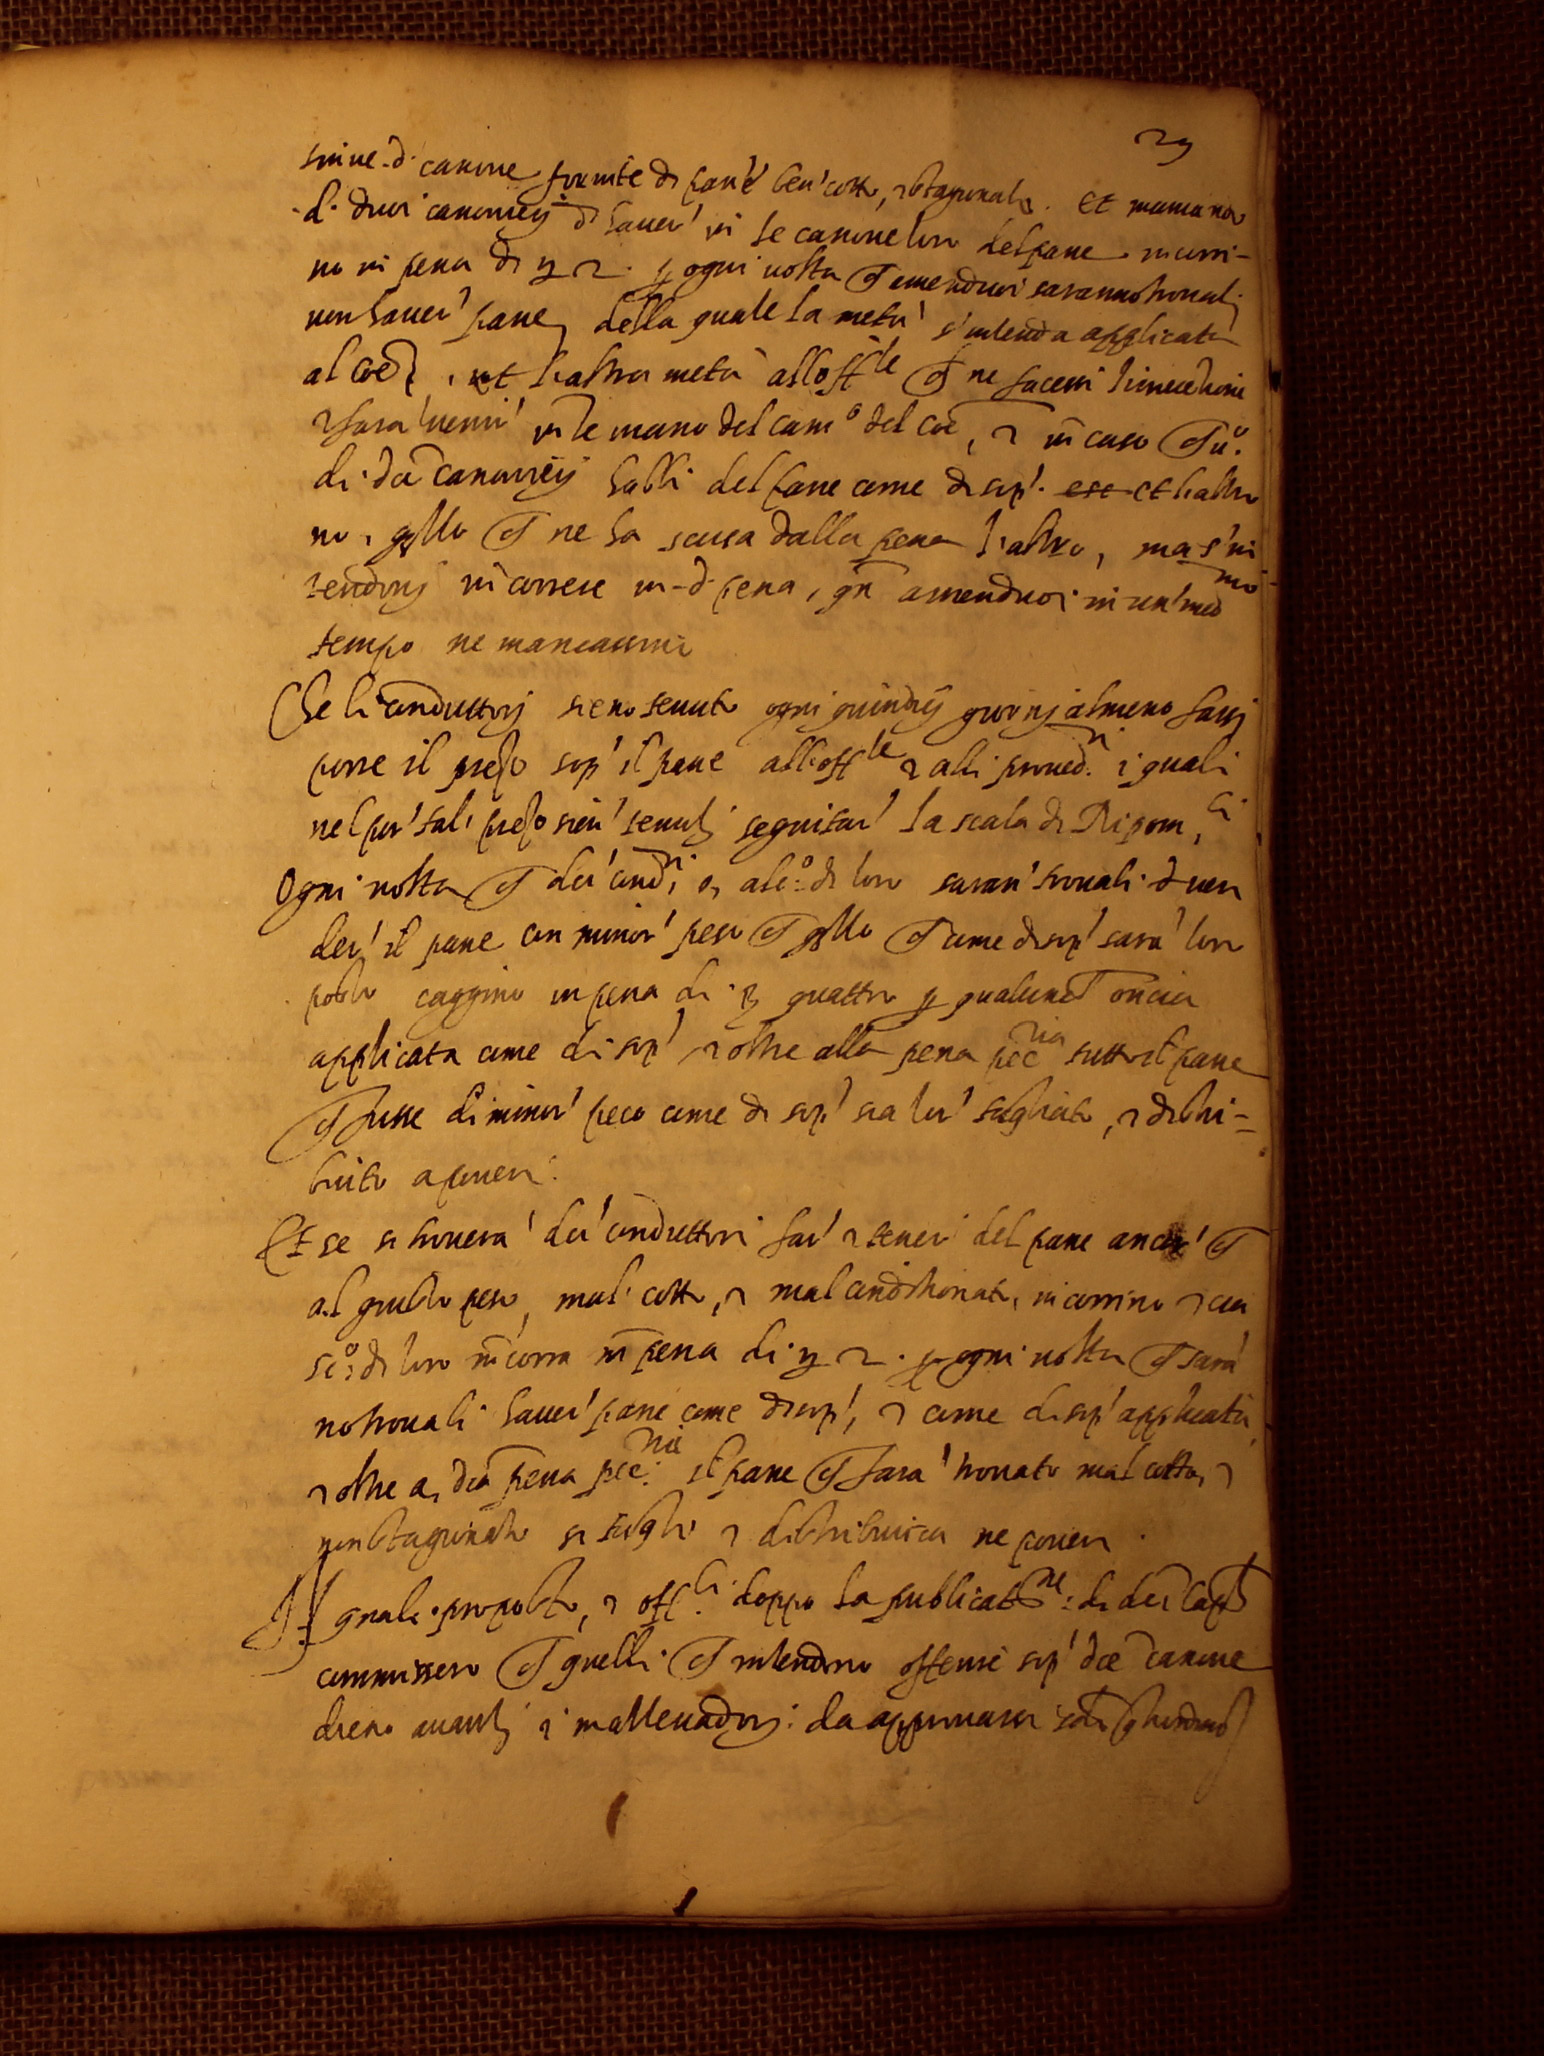 29
d. canove fornite di pan' ben cotto, et stagionato. Et mancando
d. duoi canovieri d'haver' in le canove loro del pane incorri-
no in pena di 2. p ogni volta ch amenduoi saranno trovati
non haver' pane, della quale la meta' s'intenda applicata
al coe, et l'altra meta' all'off.le ch ne facessi l'invectione
in le mano del cam.o del coe, et in caso ch u.o
di dci canovieri habbi del pane come di sop'. et l'altro
no, qllo ch ne ha scusa dalla pena l'altro, ma s'in
tendino incorrere in d. pena, qn amenduoi in un' med.mo
tempo ne mancassino
Che li conduttori sieno tenuti ogni quindici giorni almeno farsi
porre il preso sop' il pane all'off.le et alli proved.ri i quali
nel por' tal' preso sien' tenuti seguitar' la scala di Ripom,
Ogni volta ch dci' cond.ri o, alc.o di loro saran' trovati d ven
der' il pane con minor' peso ch qllo ch come di sop' sara' loro
posto caggino in pena di quattro p qualunch oncia
applicata come di sop' et oltre alla pena pec.ria tutto il pane
ch fusse di minor' peso come di sop' sia lor' tagliato, et distri=
buito a poveri.
Et se si trovera' dci' conduttori far' et tener' del pane ancor' ch
al giusto peso, mal' cotto, et mal conditionato, incorrino et cia
sc.o di loro incorra in pena di 2. p ogni volta ch sara'
no trovati haver' pane come di sop', et come di sop' applicata
et oltre a, dca pena pec.ria il pane ch sara' trovato mal cotto, et
non stagionato si tagli et distribuisca ne poveri.
proposto, et off.li doppo la publicat.ne di dci cap.li
commissero ch quelli ch intendono offerire sop' dce canove
dieno avanti i mallevadori da approvarsi